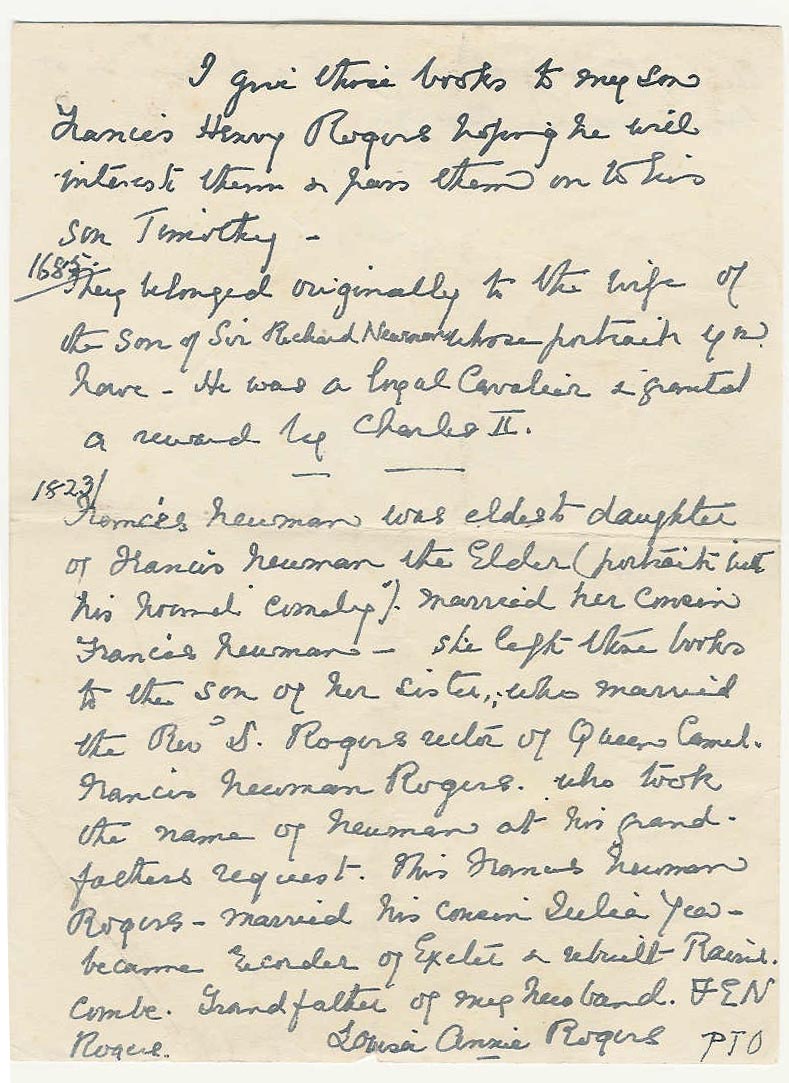 I give these books to my son
Francis Henry Rogers hoping he will
interest them & pass them on to his
son Timothy -
1685.
They belonged originally to the wife of
the son of Sir Richard Newman whose portrait you
have - He was a loyal Cavalier & granted
a reward by Charles II.
1823/
Frances Newman was eldest daughter
of Francis Newman the Elder (portrait with
his hound "Comely"). married her Cousin
Francis Newman - she left these books
to the son of her sister, who married
the Revd J. Rogers rector of Queen Camel.
Francis Newman Rogers. who took
the name of Newman at his grand-
fathers request. This Francis Newman
Rogers - married his cousin Julia Yea -
became Recorder of Exeter & rebuilt Rains-
combe. Grandfather of my husband. F E N
Rogers. Louisa Annie Rogers PTO